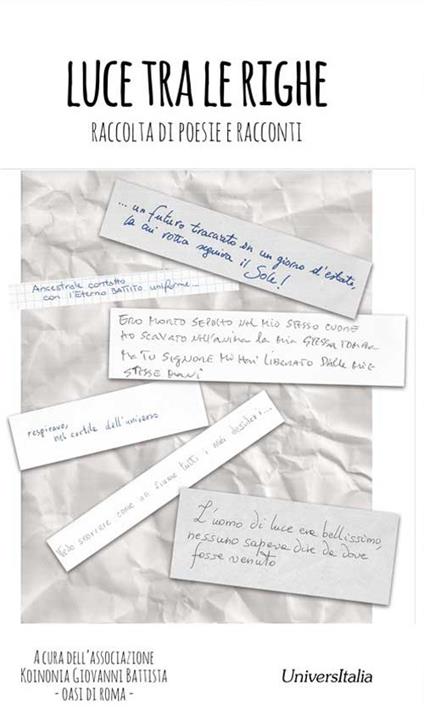 LUCE TRA LE RIGHE
RACCOLTA DI POESIE E RACCONTI
... un futuro tracciato in un giorno d'estate,
la cui rotta seguiva il Sole!
Ancestrale contatto
con l'Eterno BATTITO uniforme...
ERO MORTO SEPOLTO NEL MIO STESSO CUORE
HO SCAVATO NELL'ANIMA LA MIA STESSA TOMBA
MA TU SIGNORE MI HAI LIBERATO DALLE MIE
STESSE MANI
respiravo,
nel cortile dell'universo
Vedo scorrere come un fiume tutti i miei desideri...
L'uomo di luce era bellissimo,
nessuno sapeva dire da dove
fosse venuto
A CURA DELL'ASSOCIAZIONE
KOINONIA GIOVANNI BATTISTA
- OASI DI ROMA -
UniversItalia